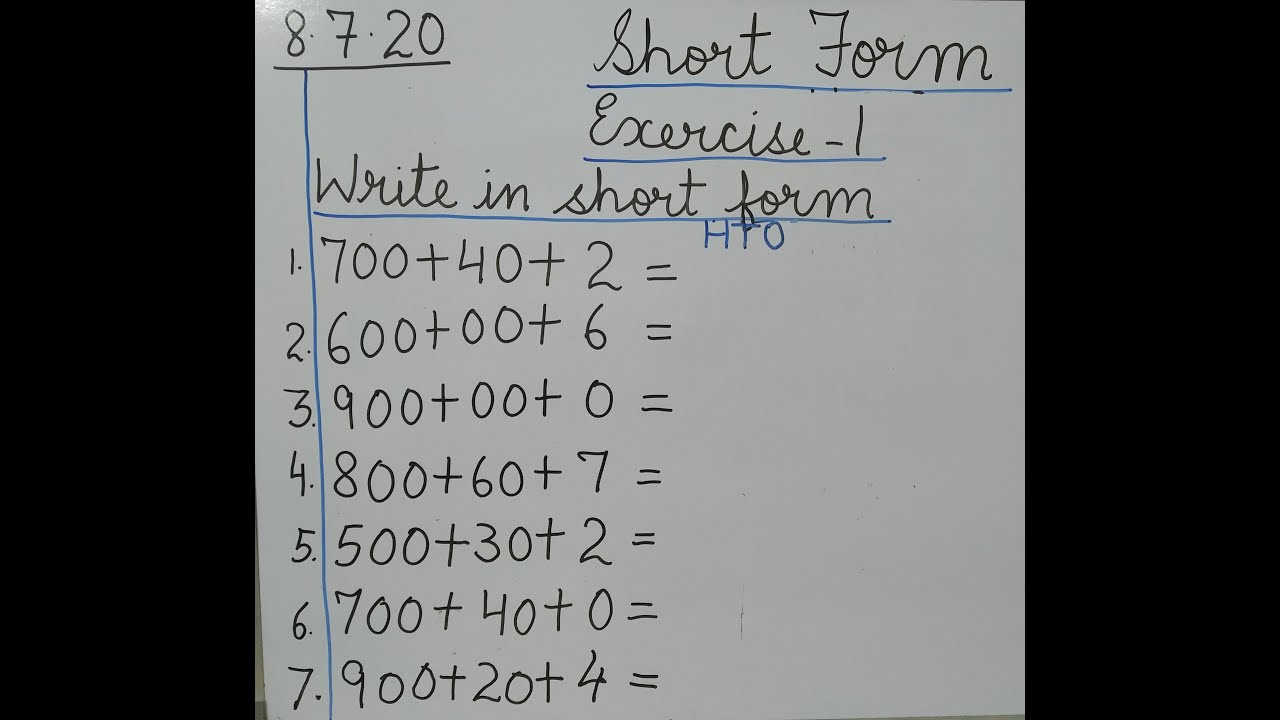 8.7.20
Short Form
Exercise-1
Write in short form
HTO
1. 700+40+2=
2. 600+00+6=
3. 900+00+0=
4. 800+60+7=
5. 500+30+2=
6. 700+40+0=
7. 900+20+4=